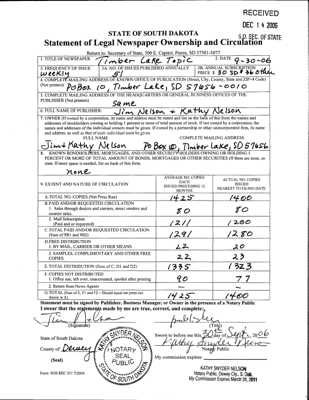 RECEIVED
DEC 14 2006
S.D. SEC. OF STATE
STATE OF SOUTH DAKOTA
Statement of Legal Newspaper Ownership and Circulation
Return to: Secretary of State, 500 E. Capitol, Pierre, SD 57501-5077
1. TITLE OF NEWSPAPER Timber Lake Topic 2. DATE 9-30-06
3. FREQUENCY OF ISSUE weekly 3A. NO. OF ISSUES PUBLISHED ANNUALLY 51 3B. ANNUAL SUBSCRIPTION PRICE $ 30 SD $36 other
4. COMPLETE MAILING ADDRESS OF KNOWN OFFICE OF PUBLICATION (Street, City, County, State and ZIP+4 Code)
(Not printers) PO Box 10, Timber Lake, SD 57656-0010
5. COMPLETE MAILING ADDRESS OF THE HEADQUARTERS OR GENERAL BUSINESS OFFICES OF THE
PUBLISHER (Not printers) same
6. FULL NAME OF PUBLISHER: Jim Nelson + Kathy Nelson
7. OWNER (If owned by a corporation, its name and address must be stated and list on the back of this form the names and
addresses of stockholders owning or holding 1 percent or more of total amount of stock. If not owned by a corporation, the
names and addresses of the individual owners must be given. If owned by a partnership or other unincorporated firm, its name
and address, as well as that of each individual must be given.
FULL NAME COMPLETE MAILING ADDRESS
Jim + Kathy Nelson PO Box 10, Timber Lake, SD 57656
8. KNOWN BONDHOLDERS, MORTGAGES, AND OTHER SECURITY HOLDERS OWNING OR HOLDING 1
PERCENT OR MORE OF TOTAL AMOUNT OF BONDS, MORTGAGES OR OTHER SECURITIES (If there are none, so
state. If more space is needed, list on back of this form.
none
9. EXTENT AND NATURE OF CIRCULATION AVERAGE NO. COPIES EACH ISSUED PRECEDING 12 MONTHS ACTUAL NO. COPIES ISSUED NEAREST TO FILING DATE
A. TOTAL NO. COPIES (Net Press Run) 1425 1400
B. PAID AND/OR REQUESTED CIRCULATION
1. Sales through dealers and carriers, street vendors and counter sales. 80 80
2. Mail Subscription (Paid and or requested) 1211 1200
C. TOTAL PAID AND/OR REQUESTED CIRCULATION (Sum of 9B1 and 9B2) 1291 1280
D. FREE DISTRIBUTION
1. BY MAIL, CARRIER OR OTHER MEANS 22 20
2. SAMPLES, COMPLIMENTARY AND OTHER FREE COPIES 22 23
E. TOTAL DISTRIBUTION (Sum of C, D1 and D2) 1335 1323
F. COPIES NOT DISTRIBUTED
1. Office use, left over, unaccounted, spoiled after printing 90 77
2. Return from News Agents
G. TOTAL (Sum of E, F1 and F2 - Should equal net press run shown in A) 1425 1400
Statement must be signed by Publisher, Business Manager, or Owner in the presence of a Notary Public
I swear that the statements made by me are true, correct, and complete.
Jim Nelson publisher
(Signature) (Title)
State of South Dakota
County of Dewey
(Seal)
KATHY SNYDER NELSON
NOTARY
SEAL
PUBLIC
SOUTH DAKOTA
Sworn to before me this 30 day of Sept. 2006
Kathy Snyder Nelson
Notary Public
My commission expires:
KATHY SNYDER NELSON
Notary Public, Dewey City., S. Dak.
My Commission Expires March 31, 2011